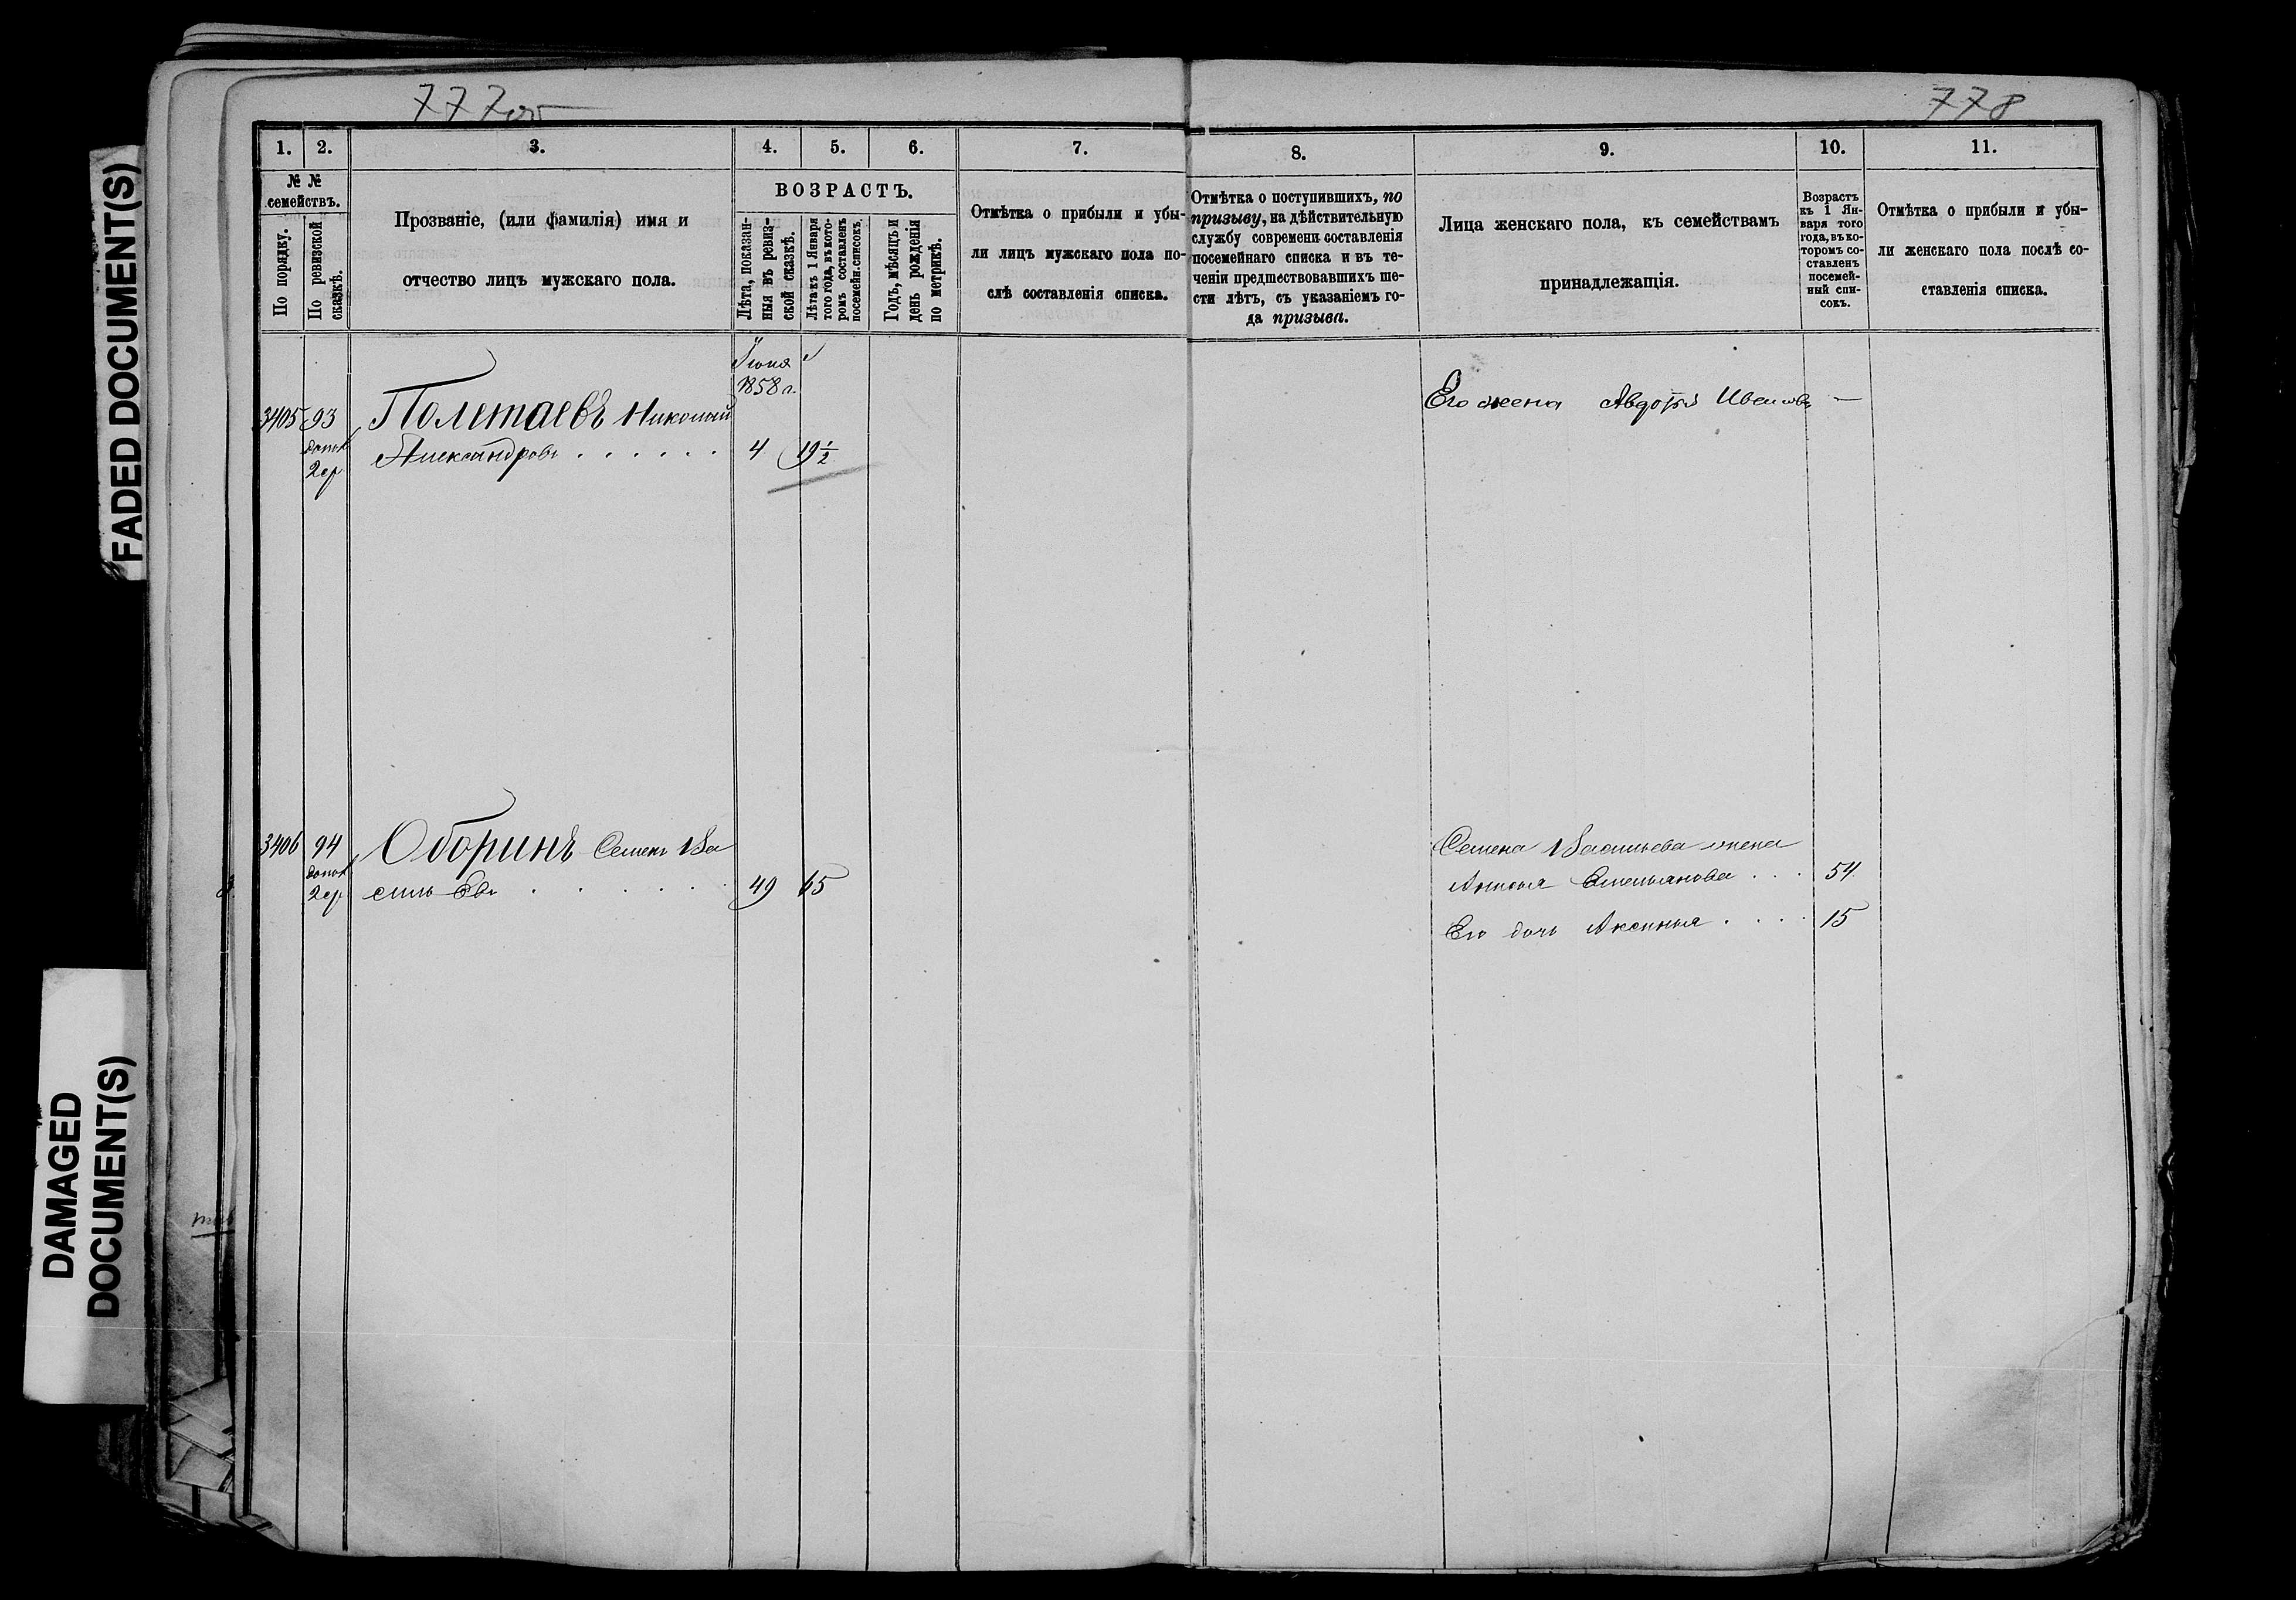 777об
778
FADED DOCUMENT(S)
DAMAGED
DOCUMENT(S)
1. 2. 3. 4. 5. 6. 7. 8. 9. 10. 11.
№ №
семействъ.
По порядку.
По ревизской
сказкѣ.
Прозваніе, (или фамилія) имя и
отчество лицъ мужскаго пола.
ВОЗРАСТЪ.
Лѣта, показан-
ныя въ ревиз-
ской сказкѣ.
Лѣта къ 1 Января
того года, въ кото-
ромъ составленъ
посемейн. списокъ.
Годъ, мѣсяцъ и
день рожденія
по метрикѣ.
Отмѣтка о прибыли и убы-
ли лицъ мужскаго пола по-
слѣ составленія списка.
Отмѣтка о поступившихъ, по
призыву, на дѣйствительную
службу современи составленія
посемейнаго списка и въ те-
ченіи предшествовавшихъ ше-
сти лѣтъ, съ указаніемъ го-
да призыва.
Лица женскаго пола, къ семействамъ
принадлежащія.
Возрастъ
къ 1 Ян-
варя того
года, въ ко-
торомъ со-
ставленъ
посемей-
ный спи-
сокъ.
Отмѣтка о прибыли и убы-
ли женскаго пола послѣ со-
ставленія списка.
Іюня
1858 г.
3405 93 Полетаевъ Николай
допол
2ср Александровъ . . . . . . 4 19½
Его жена Авдотья Иванова —
3406 94 Оборинъ Семенъ Ва
допол
2ср сильевъ . . . . . 49 65
Семена Васильева жена
Емельянова . . . 54
Его дочь Аксинья . . . . 15